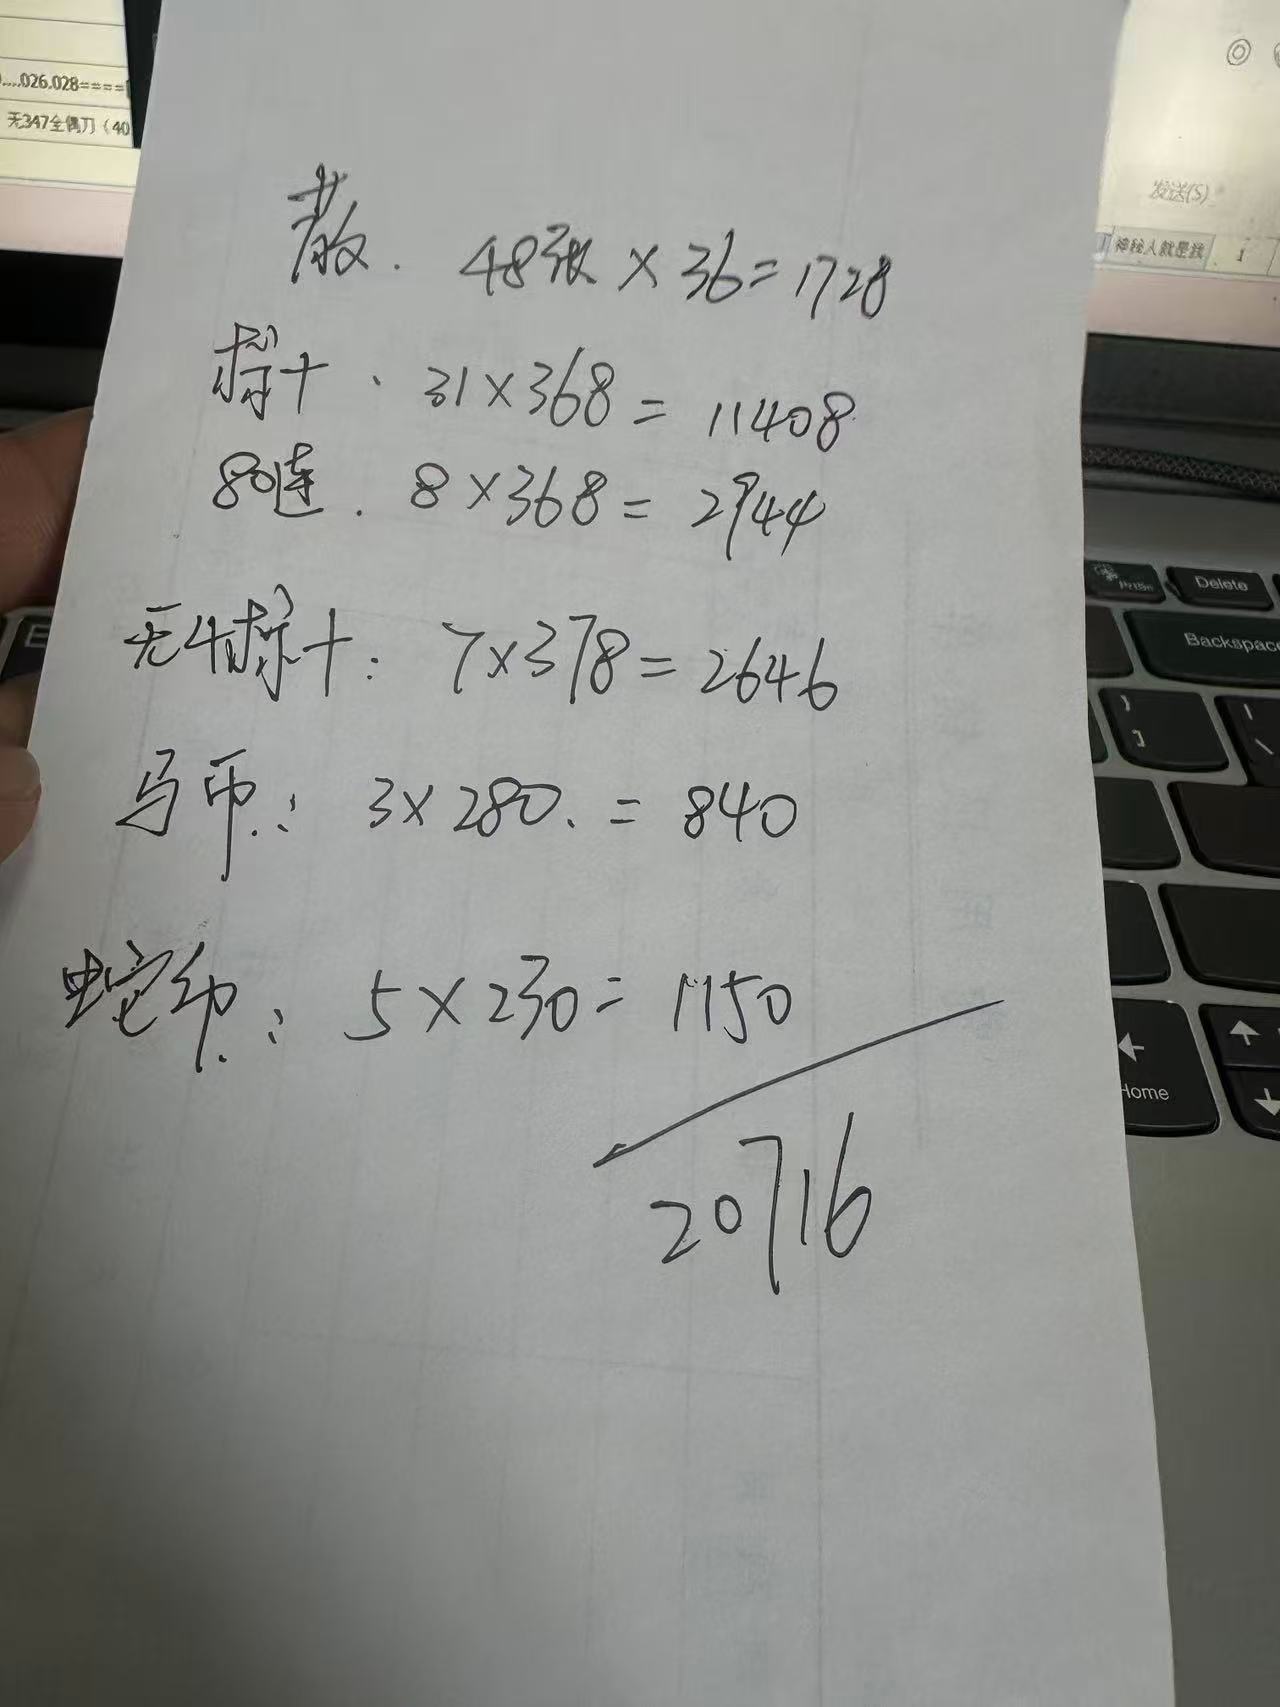 ....026.028====
无347全偶刀（40
发送(S)
神秘人就是我 1
散. 48张×36=1728
标十. 31×368=11408
80连. 8×368=2944
无4标十: 7×378=2646
马币.: 3×280.=840
蛇币.: 5×230=1150
20716
Delete
Backspac
}
]
|
\
Home